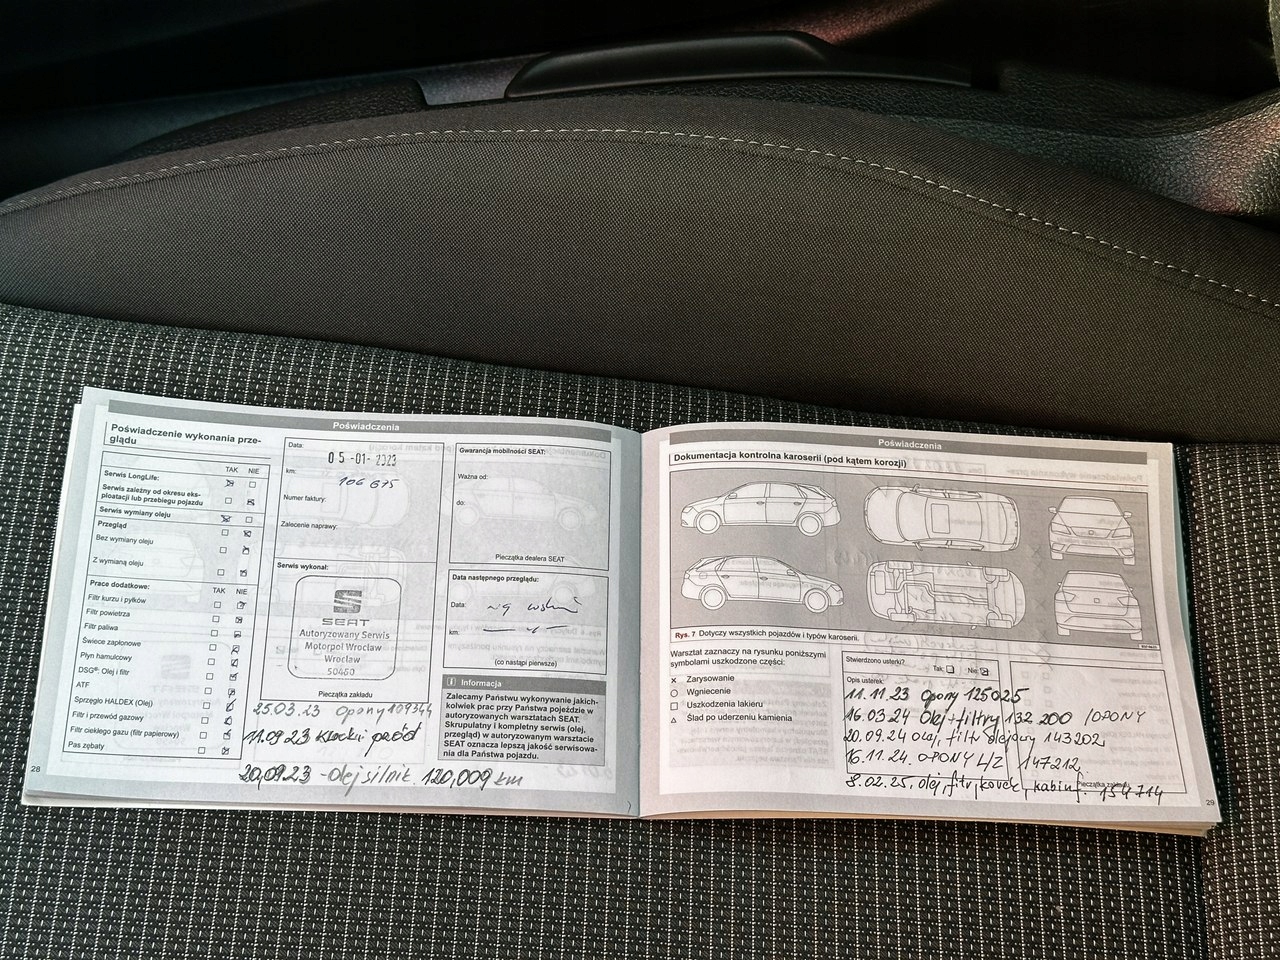 Poświadczenia
Poświadczenie wykonania prze-
glądu
TAK NIE
Serwis LongLife:
Serwis zależny od okresu eks-
ploatacji lub przebiegu pojazdu
Serwis wymiany oleju
Przegląd
Bez wymiany oleju
Z wymianą oleju
Prace dodatkowe: TAK NIE
Filtr kurzu i pyłków
Filtr powietrza
Filtr paliwa
Świece zapłonowe
Płyn hamulcowy
DSG®: Olej i filtr
ATF
Sprzęgło HALDEX (Olej)
Filtr i przewód gazowy
Filtr ciekłego gazu (filtr papierowy)
Pas zębaty
28
Data:
05-01-2023
km:
106 675
Numer faktury:
Zalecenie naprawy:
Serwis wykonał:
SEAT
Autoryzowany Serwis
Motorpol Wrocław
Wrocław
50460
Pieczątka zakładu
25.03.23 Opony 109344
11.09.23 Klocki przód
20,09.23 -olej silnik. 120,009 km
Gwarancja mobilności SEAT:
Ważna od:
do:
Pieczątka dealera SEAT
Data następnego przeglądu:
Data:
km:
(co nastąpi pierwsze)
i Informacja
Zalecamy Państwu wykonywanie jakich-
kolwiek prac przy Państwa pojeździe w
autoryzowanych warsztatach SEAT.
Skrupulatny i kompletny serwis (olej,
przegląd) w autoryzowanym warsztacie
SEAT oznacza lepszą jakość serwisowa-
nia dla Państwa pojazdu.
Poświadczenia
Dokumentacja kontrolna karoserii (pod kątem korozji)
Rys. 7 Dotyczy wszystkich pojazdów i typów karoserii.
Warsztat zaznaczy na rysunku poniższymi
symbolami uszkodzone części:
× Zarysowanie
○ Wgniecenie
□ Uszkodzenia lakieru
△ Ślad po uderzeniu kamienia
Stwierdzono usterki?
Tak: Nie:
Opis usterek:
11.11.23 Opony 125025
16.03.24 Olej+filtry 132 200 /OPONY
20.09.24 olej, filtr olejowy 143202
16.11.24. OPONY L/Z 147212
8.02.25, olej, filtr, korek, kabinf. 154714
Pieczątka zakładu
29